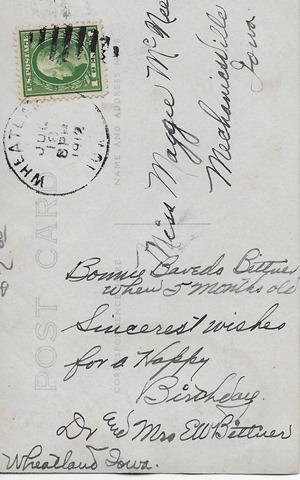 U.S. POSTAGE
1 CENT 1
WHEATLAND
JUL
18
8 PM
1912
IOWA
Miss Maggie McNee
Mechanicsville
Iowa.
POST CARD
NAME AND ADDRESS HERE
CORRESPONDENCE HERE
Bonnie Bittner
when 5 months old
Sincerest wishes
for a Happy
Birthday.
Dr and Mrs EW Bittner
Wheatland Iowa.